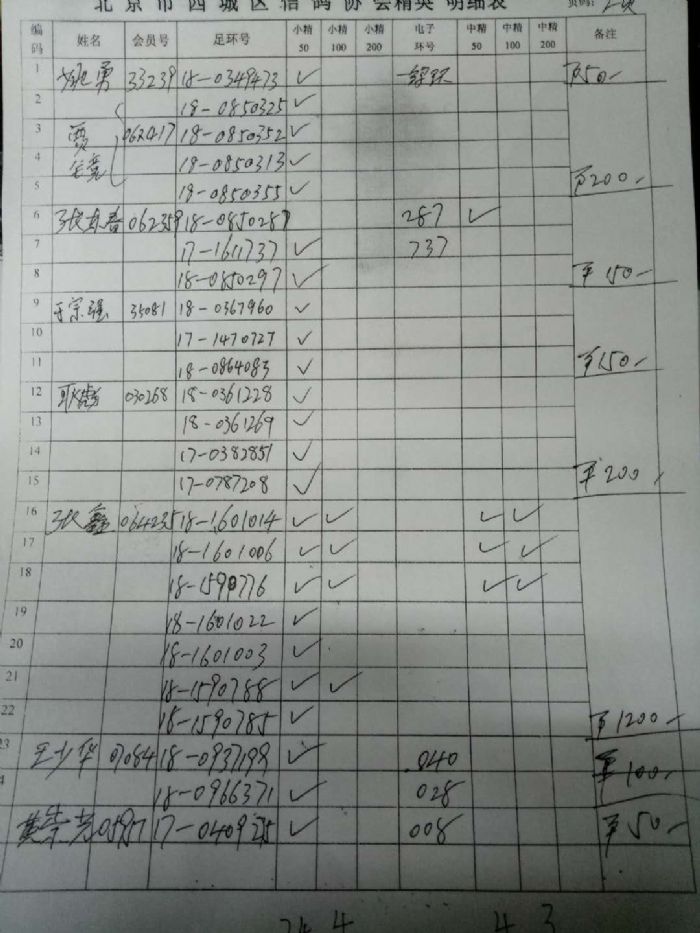 北京市西城区信鸽协会精英 明细表 页码:
编码 姓名 会员号 足环号 小精50 小精100 小精200 电子环号 中精50 中精100 中精200 备注
1 33239 18-0349473 ✓ ¥50-
2 18-0850325 ✓
3 贾 062417 18-0850352 ✓
4 18-0850313 ✓
5 18-0850355 ✓ ¥200-
6 062359 18-0850287 287 ✓
7 17-1611737 ✓ 737
8 18-0850297 ✓ ¥150-
9 于宗强 35081 18-0367960 ✓
10 17-1470727 ✓
11 18-0864083 ✓ ¥150-
12 030268 18-0361228 ✓
13 18-0361269 ✓
14 17-0382851 ✓
15 17-0787208 ✓ ¥200-
16 张鑫 064235 18-1601014 ✓ ✓ ✓ ✓
17 18-1601006 ✓ ✓ ✓ ✓
18 18-1590776 ✓ ✓ ✓ ✓
19 18-1601022 ✓
20 18-1601003 ✓
21 18-1590788 ✓ ✓
22 18-1590785 ✓ ¥1200-
23 王少华 07084 18-0937199 ✓ 040 ¥100-
18-0966371 ✓ 028
黄荣 17-040925 ✓ 008 ¥50-
4 4 3